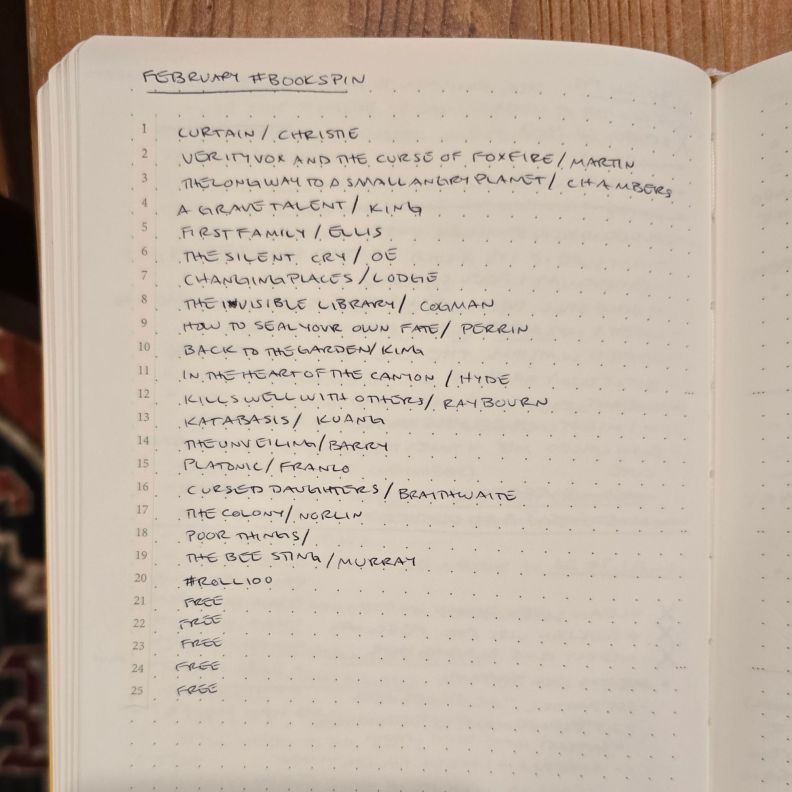 FEBRUARY #BOOKSPIN
1 CURTAIN / CHRISTIE
2 VERITY VOX AND THE CURSE OF FOXFIRE / MARTIN
3 THE LONG WAY TO A SMALL ANGRY PLANET / CHAMBERS
4 A GRAVE TALENT / KING
5 FIRST FAMILY / ELLIS
6 THE SILENT CRY / OE
7 CHANGING PLACES / LODGE
8 THE INVISIBLE LIBRARY / COGMAN
9 HOW TO SEAL YOUR OWN FATE / PERRIN
10 BACK TO THE GARDEN / KING
11 IN THE HEART OF THE CANYON / HYDE
12 KILLS WELL WITH OTHERS / RAYBOURN
13 KATABASIS / KUANG
14 THE UNVEILING / BARRY
15 PLATONIC / FRANCO
16 CURSED DAUGHTERS / BRAITHWAITE
17 THE COLONY / NORLIN
18 POOR THINGS /
19 THE BEE STING / MURRAY
20 #ROLL100
21 FREE
22 FREE
23 FREE
24 FREE
25 FREE